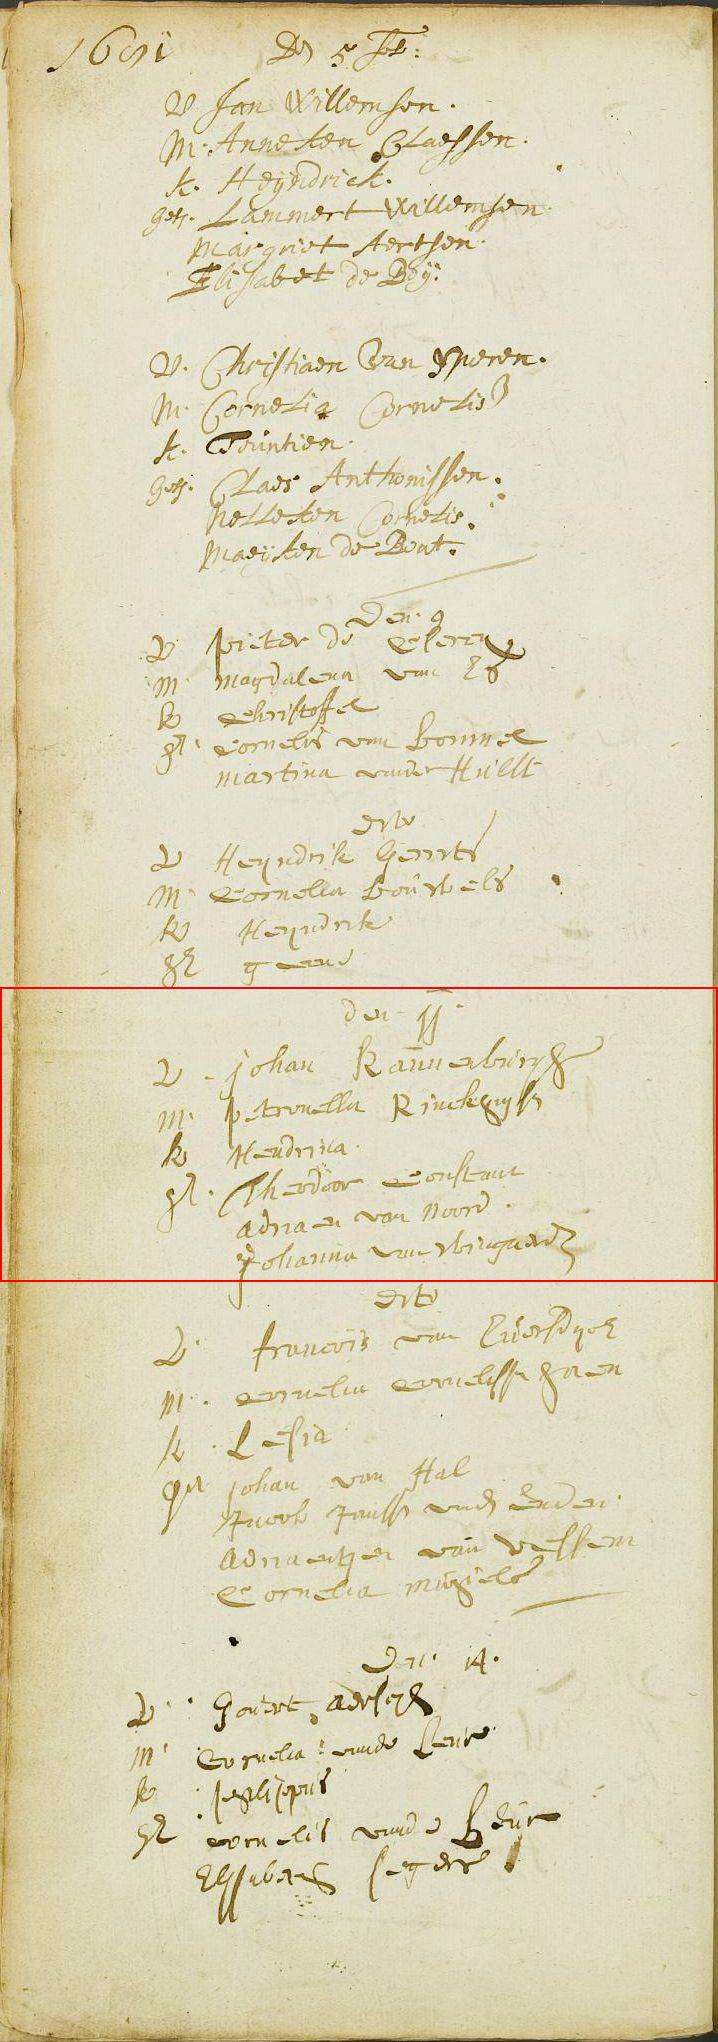 1691 Den 5 feb:
V Jan Willemsen.
M. Anneken Claessen.
k. Heyndrick.
get. Lammert Willemsen
Margriet Aertsen.
Elisabet de Boÿ.
V. Christiaen van Yperen.
M. Cornelia Cornelis
k. Teuntien.
get. Claes Anthonissen.
Nelleken Cornelis.
Maeÿken de Bout.
den. 9
V pieter de
M magdalena van
k Christoffel
gt. Cornelis van bommel
martina vander Hullt
dito
V Heyndrik Gerrts
M Cornella bouwels
k Heyndrik
gt geene
den 11.
V johan Kannenburgh
M. petronella Rinckhuyse
k Hendrina.
gt. Theodoor Constant
adriaen van Noord.
Johanna van wingaerd
dito
V. francois van
M. Cornelia Corneliss
k. Lesia
gt johan van Hal
Jacob Janss vand Enden.
Adriaentjen van Vessem
Cornelia
Den. 14.
V Govert
M Cornelia vande Leur
k
gt Cornelis vande Leur
Elysabeth Segers